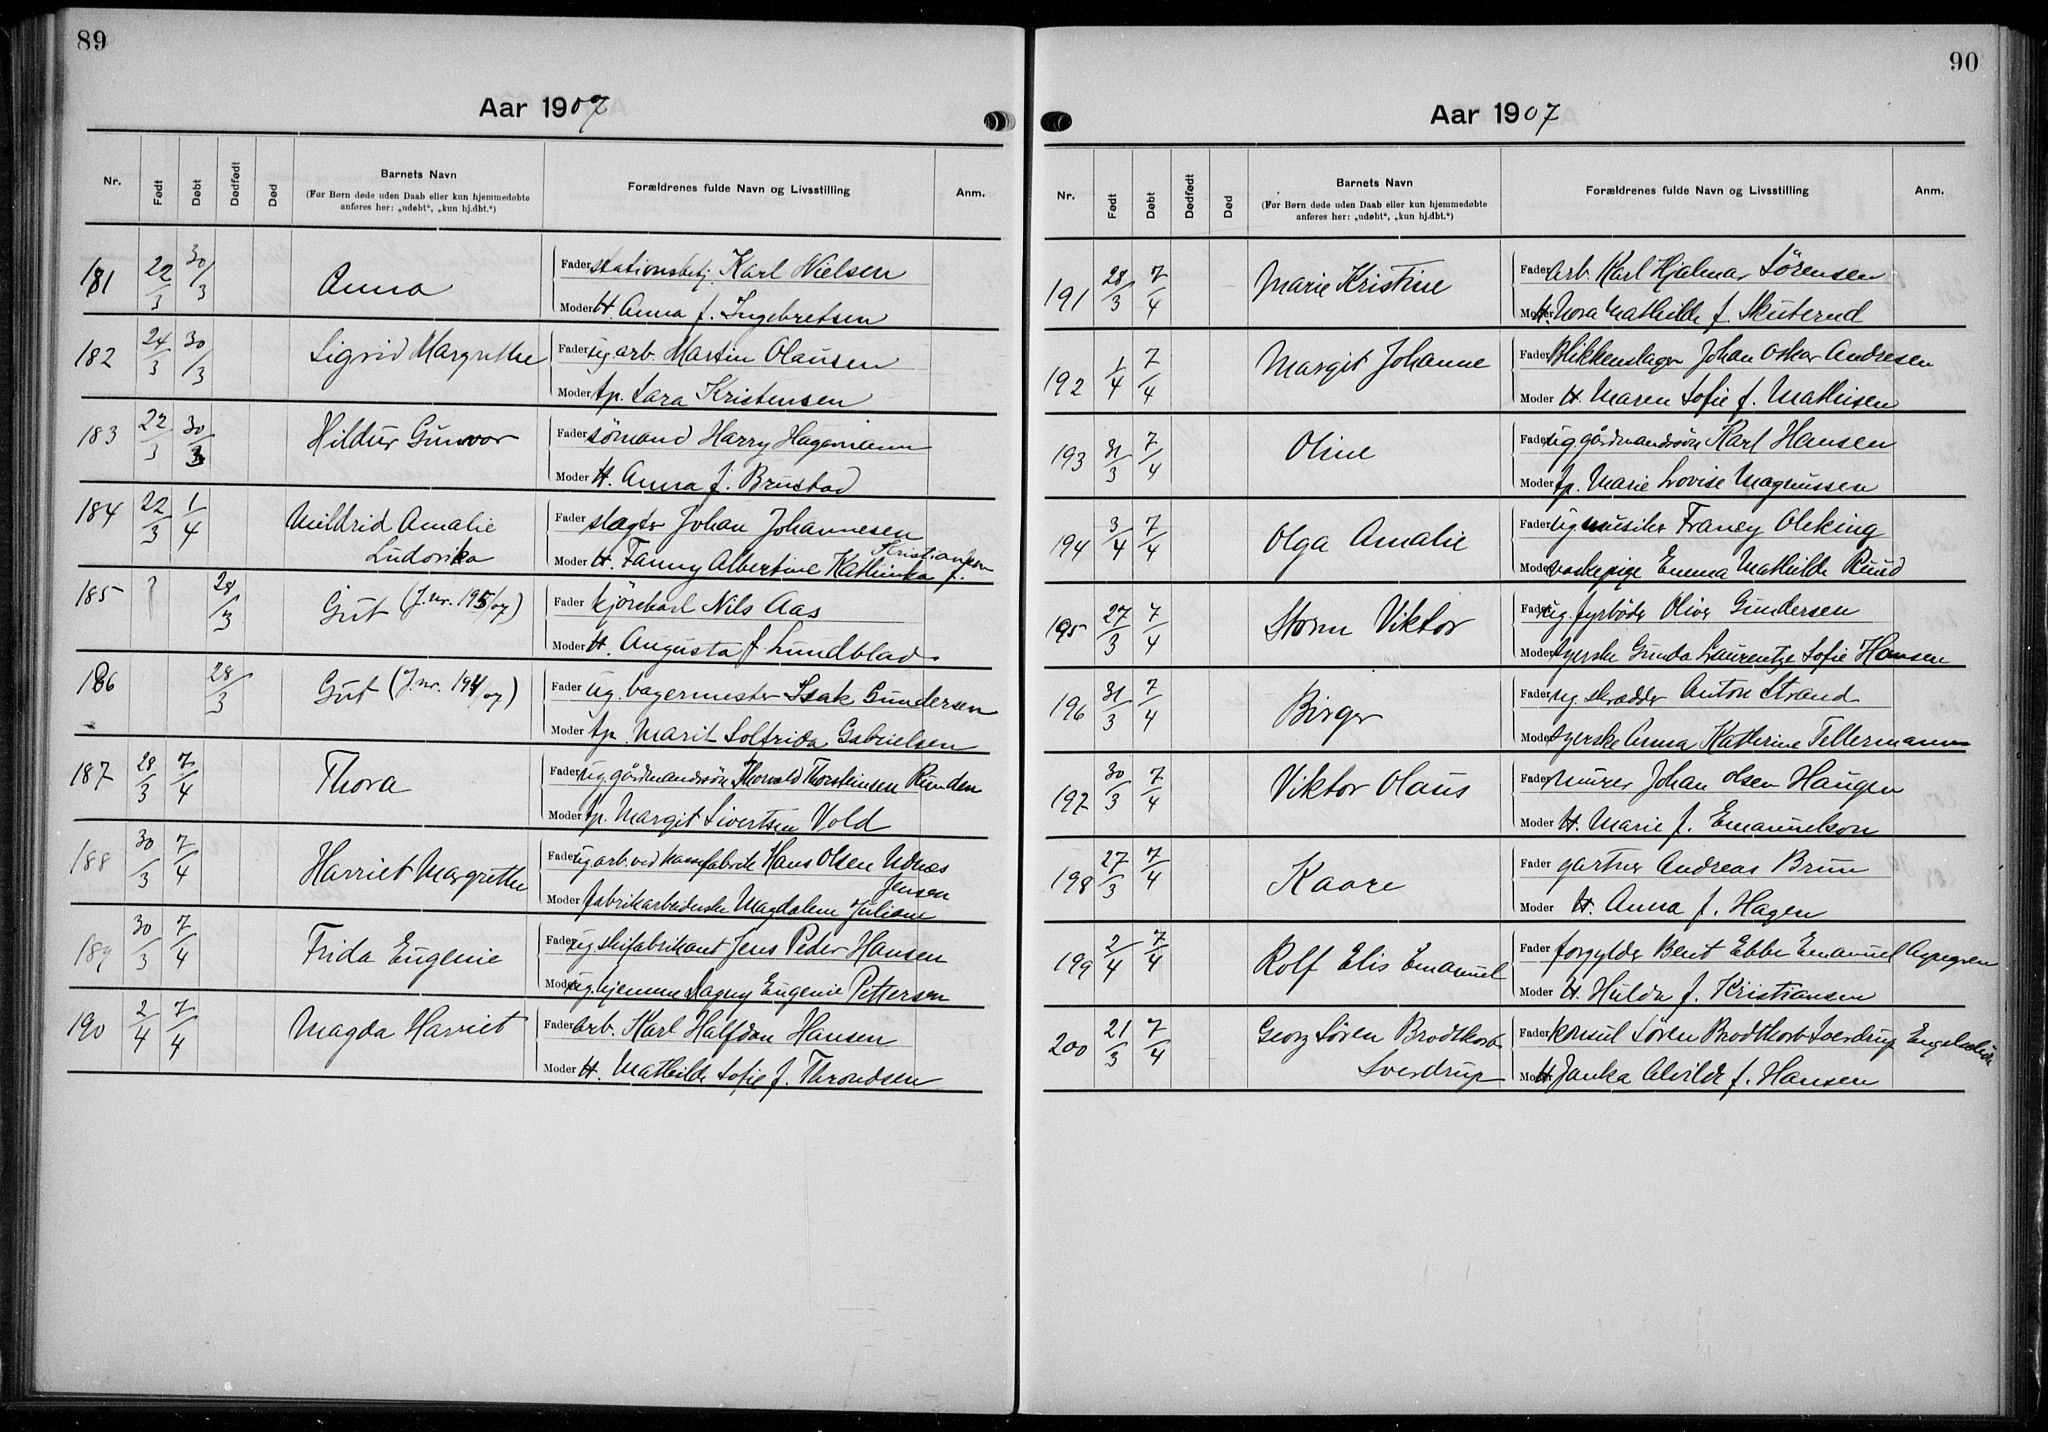 89
Aar 1907
Nr.
Født
Døbt
Dødfødt
Død
Barnets Navn
(For Børn døde uden Daab eller kun hjemmedøbte
anføres her: „udøbt“, „kun hj.dbt.“)
Forældrenes fulde Navn og Livsstilling
Anm.
181 22/3 30/3 Anna Fader stationsbetj. Karl Nielsen
Moder H. Anna f. Ingebretsen
182 24/3 30/3 Sigrid Margrethe Fader ug. arb. Martin Olausen
Moder tp. Sara Kristensen
183 22/3 30/3 Hildur Gunvor Fader sømand Harry Hagemann
Moder H. Anna f. Brustad
184 22/3 1/4 Mildrid Amalie Fader slagter Johan Johannesen
Ludovika Moder H. Fanny Albertine Kathinka f. Kristiansen
185 ? 28/3 Gut (J.nr. 195/07) Fader kjørekarl Nils Aas
Moder H. Augusta f. Lundblad
186 28/3 Gut (J.nr. 194/07) Fader ug. bagermester Isak Gundersen
Moder tp. Marit Solfrida Gabrielsen
187 28/3 7/4 Thora Fader ug. gårdmandssøn Thorvald Thorsteinsen Runden
Moder tp. Margit Sivertsen Vold
188 30/3 7/4 Harriet Margrethe Fader ug. arb. ved Hans Olsen Udnæs
Moder fabrikarbeiderske Magdalene Juliane Jensen
189 30/3 7/4 Frida Eugenie Fader ug. skifabrikant Jens Peder Hansen
Moder ug. hjemme Dagny Eugenie Pettersen
190 2/4 7/4 Magda Harriet Fader arb. Karl Halfdan Hansen
Moder H. Mathilde Sofie f. Throndsen
90
Aar 1907
Nr.
Født
Døbt
Dødfødt
Død
Barnets Navn
(For Børn døde uden Daab eller kun hjemmedøbte
anføres her: „udøbt“, „kun hj.dbt.“)
Forældrenes fulde Navn og Livsstilling
Anm.
191 28/3 7/4 Marie Kristine Fader arb. Karl Hjalmar Sørensen
Moder H. Nora Mathilde f. Skuterud
192 1/4 7/4 Margit Johanne Fader Blikkenslager Johan Oskar Andresen
Moder H. Maren Sofie f. Mathisen
193 31/3 7/4 Oline Fader ug gårdmandssøn Karl Hansen
Moder tp. Marie Lovise Magnussen
194 3/4 7/4 Olga Amalie Fader ug musiker
Moder vaskepige Emma Mathilde Ruud
195 27/3 7/4 Storm Viktor Fader ug. fyrbøder Oliver Gundersen
Moder syerske Gunda Laurentze Sofie Hansen
196 31/3 7/4 Birger Fader ug skrædder Anton Strand
Moder syerske Anna Kathrine Tellermann
197 30/3 7/4 Viktor Olaus Fader murer Johan Olsen Haugen
Moder H. Marie f. Emanuelson
198 27/3 7/4 Kaare Fader gartner Andreas Brun
Moder H. Anna f. Hagen
199 2/4 7/4 Rolf Elis Emanuel Fader forgylder Bent Ebbe Emanuel
Moder H. Hulda f. Kristiansen
200 21/3 7/4 Georg Søren Brodtkorb Fader konsul Søren Brodtkorb Sverdrup
Sverdrup Moder H Janka Alvilde f. Hansen